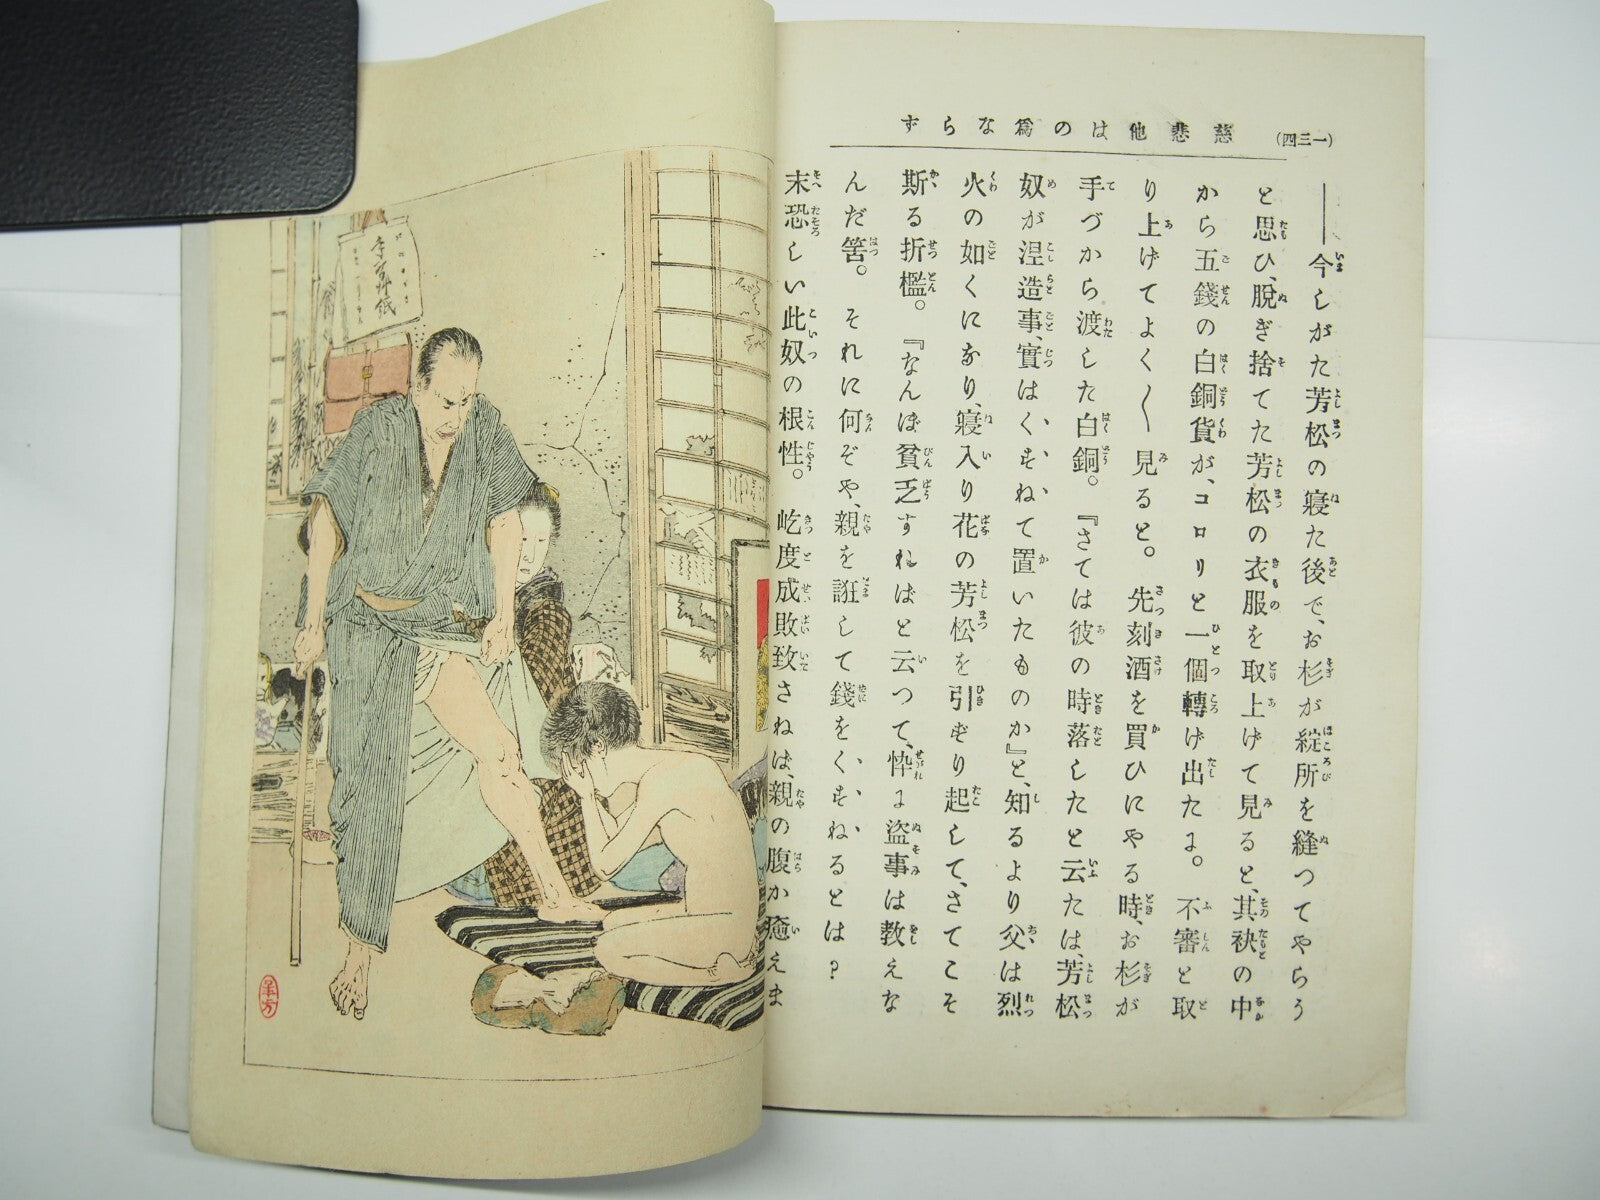 慈悲他はの爲ならず
(一三四)
――今しがた芳松の寢た後で、お杉が綻所を縫つてやらう
と思ひ、脱ぎ捨てた芳松の衣服を取上げて見ると、其袂の中
から五錢の白銅貨が、コロリと一個轉げ出たよ。不審と取
り上げてよく〱見ると。先刻酒を買ひにやる時、お杉が
手づから渡した白銅。『さては彼の時落したと云たは、芳松
奴が涅造事、實はくすねて置いたものか』と、知るより父は烈
火の如くになり、寢入り花の芳松を引ずり起して、さてこそ
斯る折檻。『なんぼ貧乏すればと云つて、悴に盜事は教えな
んだ筈。それに何ぞや、親を誑して錢をくすねるとは?
末恐しい此奴の根性。屹度成敗致さねば、親の腹か癒えま
年方